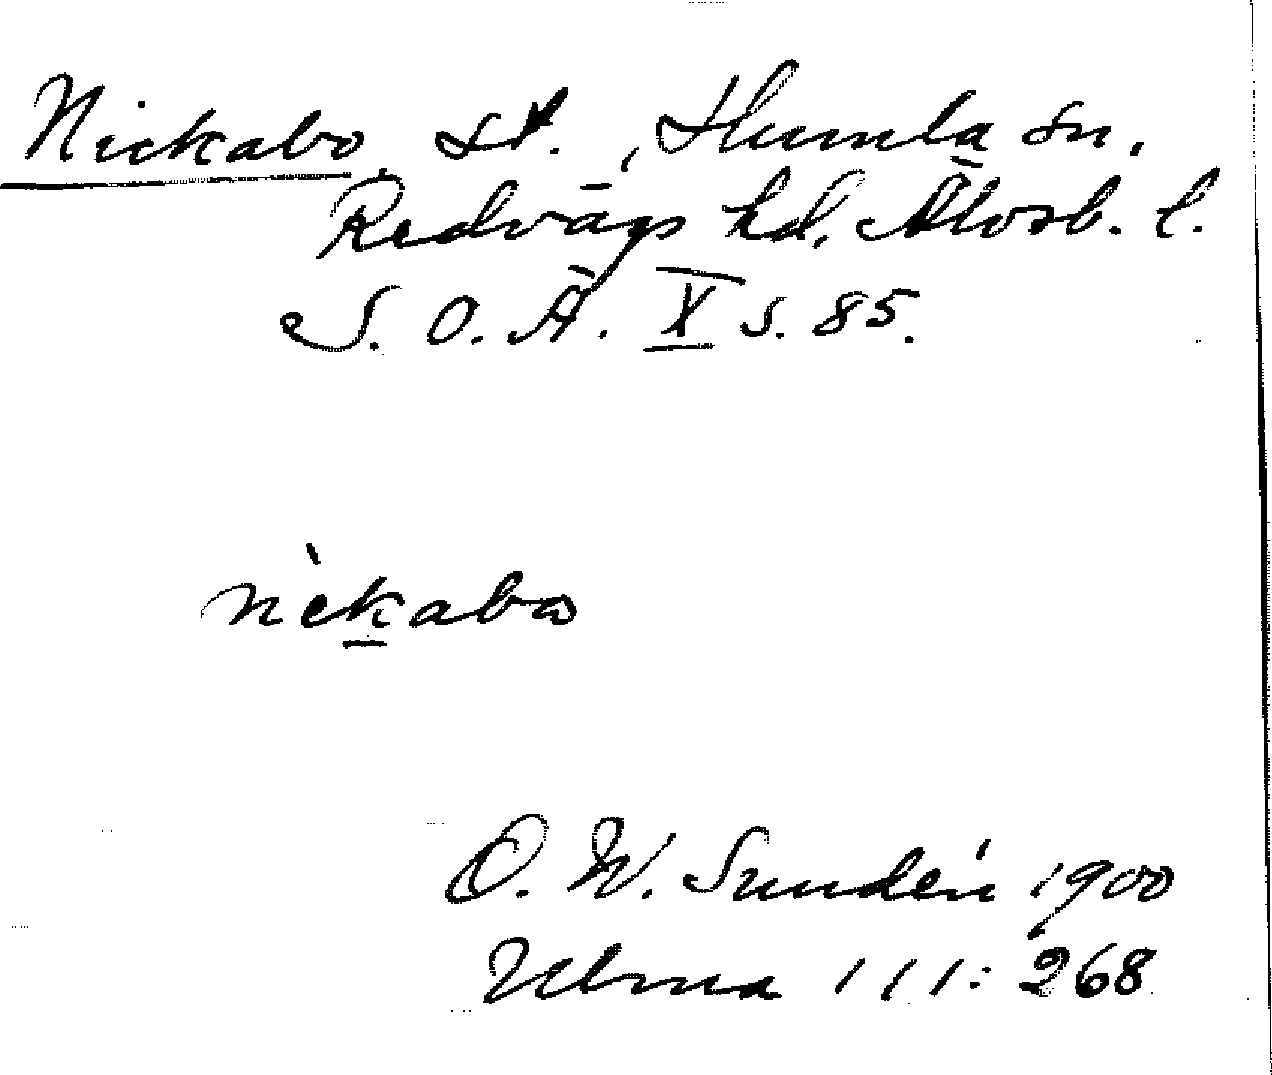 Nickabo St., Humla sn.
Redvägs hd. Älvsb. l.
S. O. Ä. X s. 85.
nὲkabo
O. W. Sundén 1900
Ulma 111: 268